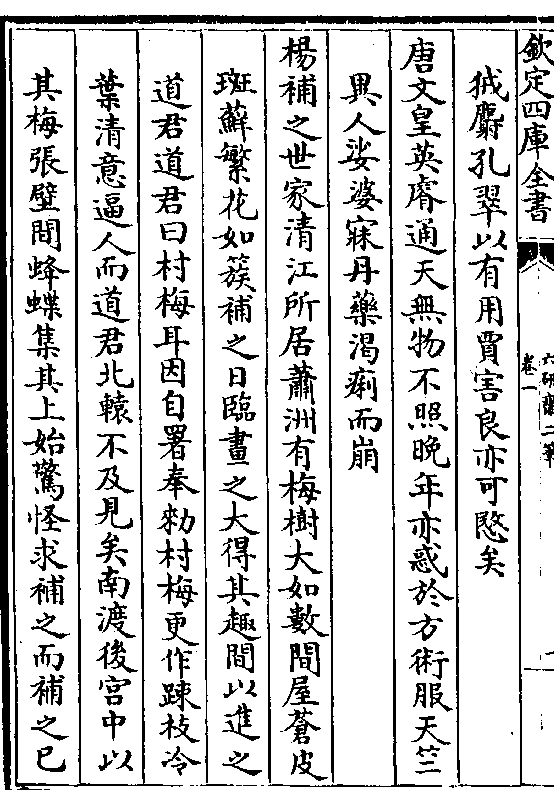 欽定四庫全書
卷一
六研齋二筆
狨麝孔翠以有用賈害良亦可愍矣
唐文皇英睿通天無物不照晚年亦惑於方術服天竺
異人娑婆寐丹藥渴痢而崩
楊補之世家清江所居蕭洲有梅樹大如數間屋蒼皮
斑蘚繁花如簇補之日臨畫之大得其趣間以進之
道君道君曰村梅耳因自署奉勑村梅更作踈枝冷
葉清意逼人而道君北轅不及見矣南渡後宫中以
其梅張壁間蜂蝶集其上始驚怪求補之而補之已